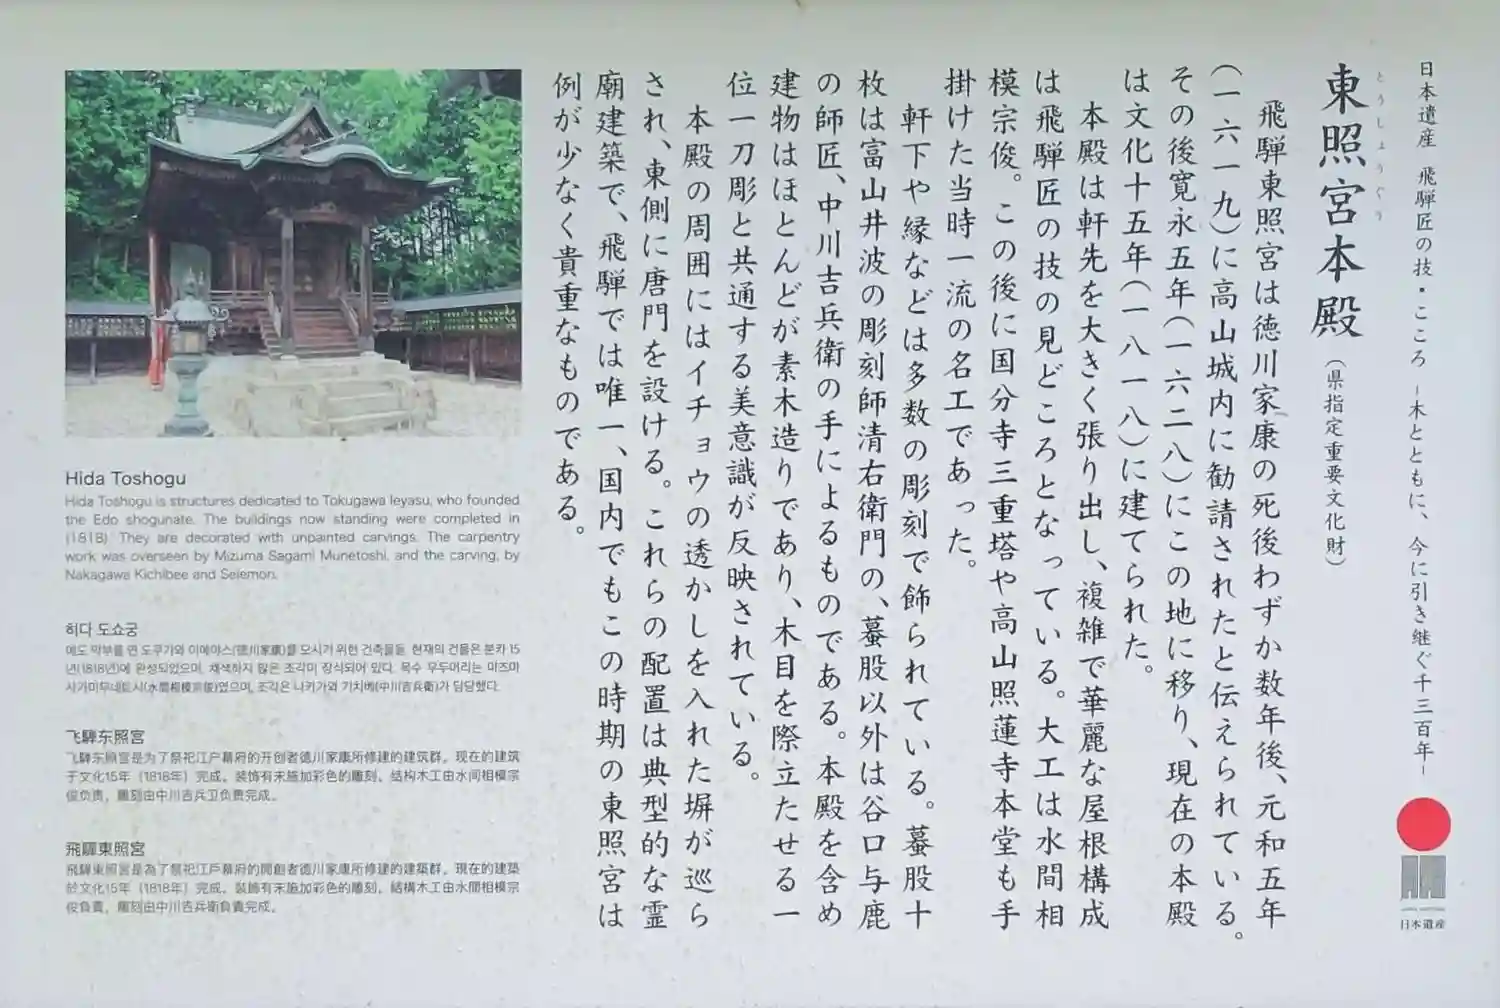 日本遺産 飛騨匠の技・こころ −木とともに、今に引き継ぐ千三百年−
とうしょうぐう
東照宮本殿（県指定重要文化財）
飛騨東照宮は徳川家康の死後わずか数年後、元和五年
（一六一九）に高山城内に勧請されたと伝えられている。
その後寛永五年（一六二八）にこの地に移り、現在の本殿
は文化十五年（一八一八）に建てられた。
本殿は軒先を大きく張り出し、複雑で華麗な屋根構成
は飛騨匠の技の見どころとなっている。大工は水間相
模宗俊。この後に国分寺三重塔や高山照蓮寺本堂も手
掛けた当時一流の名工であった。
軒下や縁などは多数の彫刻で飾られている。蟇股十
枚は富山井波の彫刻師清右衛門の、蟇股以外は谷口与鹿
の師匠、中川吉兵衛の手によるものである。本殿を含め
建物はほとんどが素木造りであり、木目を際立たせる一
位一刀彫と共通する美意識が反映されている。
本殿の周囲にはイチョウの透かしを入れた塀が巡ら
され、東側に唐門を設ける。これらの配置は典型的な霊
廟建築で、飛騨では唯一、国内でもこの時期の東照宮は
例が少なく貴重なものである。
日本遺産
Hida Toshogu
Hida Toshogu is structures dedicated to Tokugawa Ieyasu, who founded
the Edo shogunate. The buildings now standing were completed in
(1818). They are decorated with unpainted carvings. The carpentry
work was overseen by Mizuma Sagami Munetoshi, and the carving, by
Nakagawa Kichibee and Seiemon.
히다 도쇼궁
에도 막부를 연 도쿠가와 이에야스(德川家康)를 모시기 위한 건축물들. 현재의 건물은 분카 15
년(1818년)에 완성되었으며, 채색하지 않은 조각이 장식되어 있다. 목수 우두머리는 미즈마
사가미무네토시(水間相模宗俊)였으며, 조각은 나카가와 기치베(中川吉兵衛)가 담당했다.
飞騨东照宫
飞騨东照宫是为了祭祀江户幕府的开创者德川家康所修建的建筑群。现在的建筑
于文化15年（1818年）完成。装饰有未施加彩色的雕刻。结构木工由水间相模宗
俊负责，雕刻由中川吉兵卫负责完成。
飛騨東照宮
飛騨東照宮是為了祭祀江戶幕府的開創者德川家康所修建的建築群。現在的建築
於文化15年（1818年）完成。裝飾有未施加彩色的雕刻。結構木工由水間相模宗
俊負責，雕刻由中川吉兵衛負責完成。